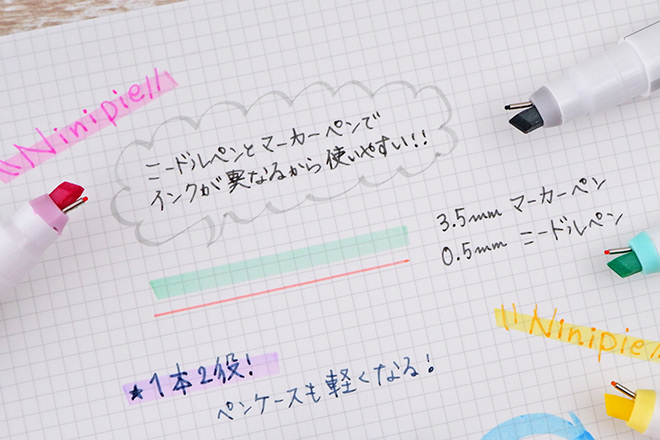 \\Ninipie//
ニードルペンとマーカーペンで
インクが異なるから使いやすい!!
3.5mm マーカーペン
0.5mm ニードルペン
\\Ninipie//
★1本2役!
ペンケースも軽くなる!